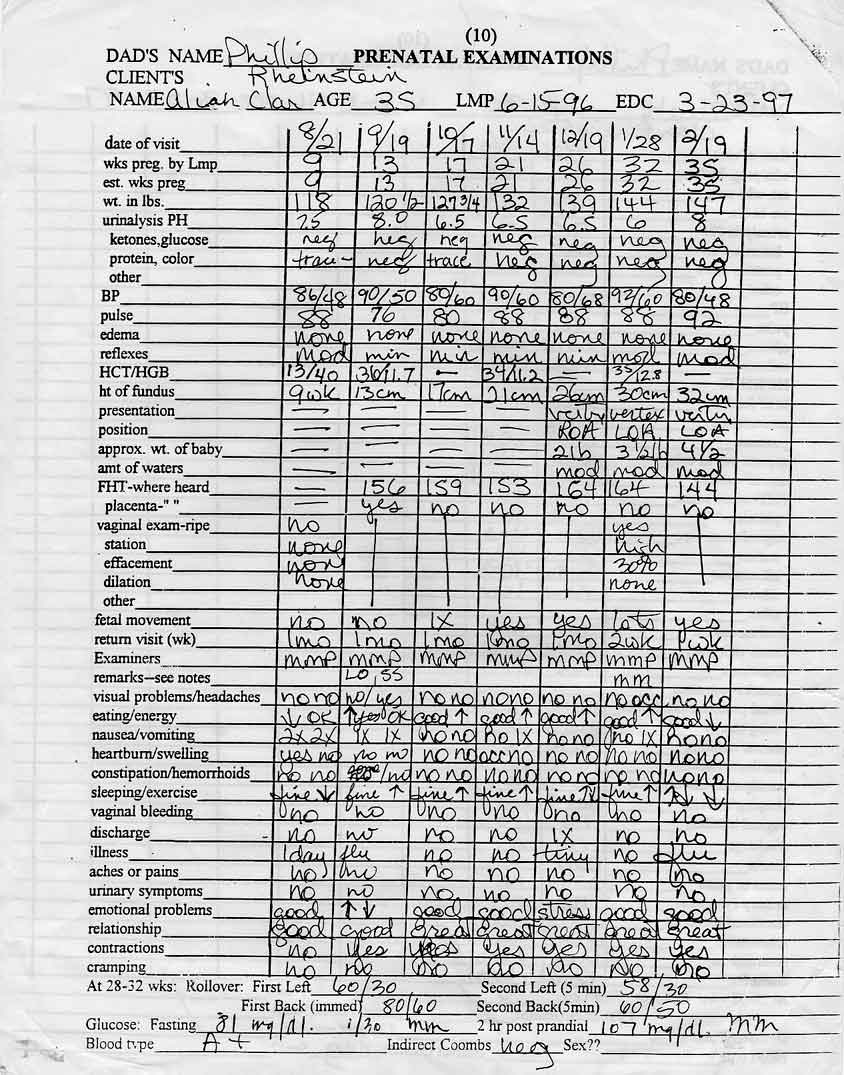 (10)
DAD'S NAME Phillip PRENATAL EXAMINATIONS
CLIENT'S Rheinstein
NAME AGE 35 LMP 6-15-96 EDC 3-23-97
date of visit 8/21 9/19 10/17 11/14 12/19 1/28 2/19
wks preg. by Lmp 9 13 17 21 26 32 35
est. wks preg 9 13 17 21 26 32 35
wt. in lbs. 118 120 1/2 127 3/4 132 139 144 147
urinalysis PH 7.5 8.0 6.5 6.5 6.5 6 8
ketones,glucose neg neg neg neg neg neg neg
protein, color trace- neg trace neg neg neg neg
other
BP 86/48 90/50 80/60 90/60 80/68 92/60 80/48
pulse 88 76 80 88 88 88 92
edema none none none none none none none
reflexes mod min min min min mod mod
HCT/HGB 13/40 36/11.7 — 34/11.2 — —
ht of fundus 9wk 13cm 17cm 21cm 26cm 30cm 32cm
presentation — — — — vertex vertex vertex
position — — — — ROA LOA LOA
approx. wt. of baby — — — — 2lb 3 1/2lb 4 1/2
amt of waters — — — — mod mod mod
FHT-where heard — 156 159 153 164 164 144
placenta-" " — yes no no no no no
vaginal exam-ripe no yes
station none high
effacement none 30%
dilation none none
other
fetal movement no no 1X yes yes lots yes
return visit (wk) 1mo 1mo 1mo 1mo 1mo 2wk 1wk
Examiners mmp mmp mmp mmp mmp mmp mmp
remarks--see notes LO, SS mm
visual problems/headaches no no no/yes no no no no no no no occ no no
eating/energy ↓ OK ↑yes OK good ↑ good ↑ good ↑ good ↑ good ↓
nausea/vomiting 2X 2X 1X 1X no no no 1X no no no 1X no no
heartburn/swelling yes no no no no no occ no no no no no no no
constipation/hemorrhoids no no /no no no no no no no no no no no
sleeping/exercise fine ↓ fine ↑ fine ↑ fine ↑ fine ↑↓ fine ↑ ↑↓ ↓
vaginal bleeding no no no no no no no
discharge no no no no 1X no no
illness 1day flu no no tiny no flu
aches or pains no no no no no no no
urinary symptoms no no no no no no no
emotional problems good ↑ ↓ good good stress good good
relationship good good great great great great great
contractions no yes yes yes yes yes yes
cramping no no no no no no no
At 28-32 wks: Rollover: First Left 60/30 Second Left (5 min) 58/30
First Back (immed) 80/60 Second Back(5min) 60/50
Glucose: Fasting 81 mg/dl. 1/30 mm 2 hr post prandial 107 mg/dl. MM
Blood type A+ Indirect Coombs neg Sex??